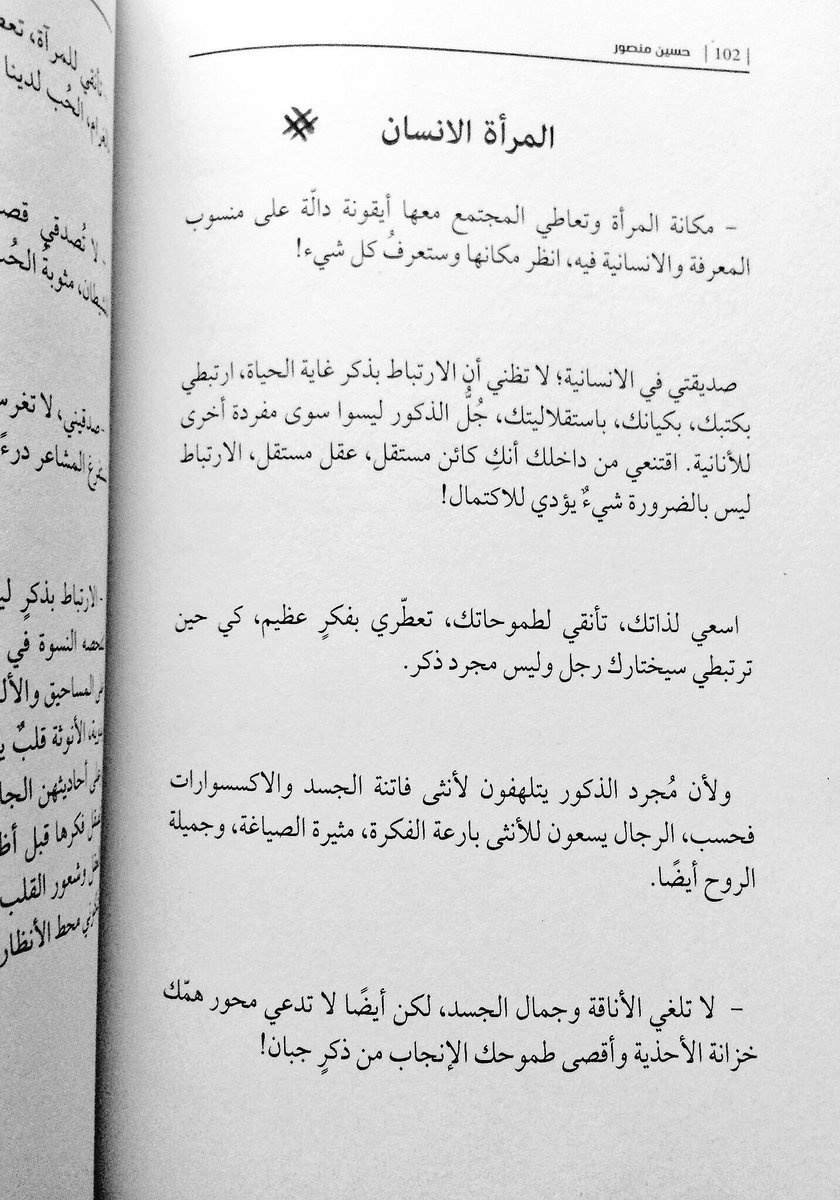 | 102 | حسين منصور
المرأة الانسان #
– مكانة المرأة وتعاطي المجتمع معها أيقونة دالّة على منسوب
المعرفة والانسانية فيه، انظر مكانها وستعرفُ كل شيء!
صديقتي في الانسانية؛ لا تظني أن الارتباط بذكر غاية الحياة، ارتبطي
بكتبك، بكيانك، باستقلاليتك، جُلُّ الذكور ليسوا سوى مفردة أخرى
للأنانية. اقتنعي من داخلك أنكِ كائن مستقل، عقل مستقل، الارتباط
ليس بالضرورة شيءٌ يؤدي للاكتمال!
اسعي لذاتك، تأنقي لطموحاتك، تعطّري بفكرٍ عظيم، كي حين
ترتبطي سيختارك رجل وليس مجرد ذكر.
ولأن مُجرد الذكور يتلهفون لأنثى فاتنة الجسد والاكسسوارات
فحسب، الرجال يسعون للأنثى بارعة الفكرة، مثيرة الصياغة، وجميلة
الروح أيضًا.
– لا تلغي الأناقة وجمال الجسد، لكن أيضًا لا تدعي محور همّك
خزانة الأحذية وأقصى طموحك الإنجاب من ذكرٍ جبان!
للمرآة، تعص
الحُب لدينا
– لا تُصدقي قصـ
مثوبة الحُـ
–صدقيني، لا تغرسـ
المشاعر درءً
– الارتباط بذكرٍ ليـ
النسوة في
المساحيق والألـ
الأنوثة قلبٌ يـ
أحاديثهن الجا
فكرها قبل أظـ
وشعور القلب
محط الأنظار